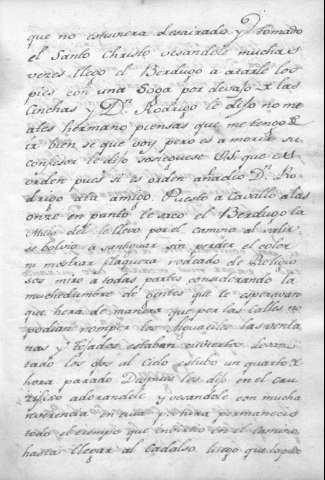 que no estuviera desairado y tomado
el Santo Christo vesandole muchas
vezes llego el Berdugo a atarle los
pies con una Soga por devajo de las
Cinchas y Dn. Rodrigo le dijo no me
ates hermano piensas que me tengo de
ir bien se que voy, pero es a morir su
confesor le dijo sosieguese VSª que es
orden pues si es orden añadio D. Ro
drigo ata amigo. Puesto a Cavallo a las
onze en punto le saco el Berdugo la
Mula del le llevo por el camino al salir
se bolvio a santiguar sin perder el color
ni mostrar flaqueza rodeado de Religio
sos miro a todas partes considerando la
muchedumbre de gentes que le esperavan
que hera de manera que por las Calles no
podian romper los Alguaciles las venta
nas y tejados estaban cubiertos levan
tando los ojos al Cielo estubo un quarto de
hora parado Despues los dejo en el cru
zifixo adorandole y vesandole con mucha
reverencia en cuia postura permanecio
todo el tiempo que
hasta llegar al Cadalso, luego que